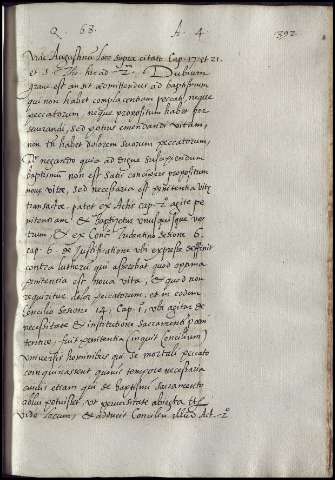 Q. 68. A. 4. 1392
Vide Augustinum loco supra citato Cap. 17 et 21.
et S. Th. hic ad 2. Dubium
grave est an sit admittendus ad baptismum
qui non habet complacentiam peccati, neque
peccatorum, neque propositum habet per
severandi, sed potius emendandi vitam,
non tñ habet dolorem suorum peccatorum,
negando quia ad digne suscipiendum
baptismũ non est satis concipere propositum
novæ vitæ, sed necessaria est pœnitentia vitæ
transactæ. patet ex Acts cap. 2. agite pœ
nitentiam, & baptizetur unusquisque ves
trum, & ex Conc. Tridentino Sesione 6.
cap. 6. de Justificatione ubi expresse deffinit
contra luterũ qui asserebat quod optima
pœnitentia est nova vita, & quod non
requiritur dolor peccatorum, et in eodem
Concilio Sesione 14. Cap. 1. ubi agitur de
necessitate & institutione Sacramenti pœni
tentiæ, fuit pœnitentia (inquit Concilium)
universis hominibus qui se mortali peccato
coinquinassent quovis tempore necessaria
illis etiam qui se baptismi Sacramento
ablui petivissent, ut perversitate abiecta
vide locum, & adducit Concilium illud Act. 2.